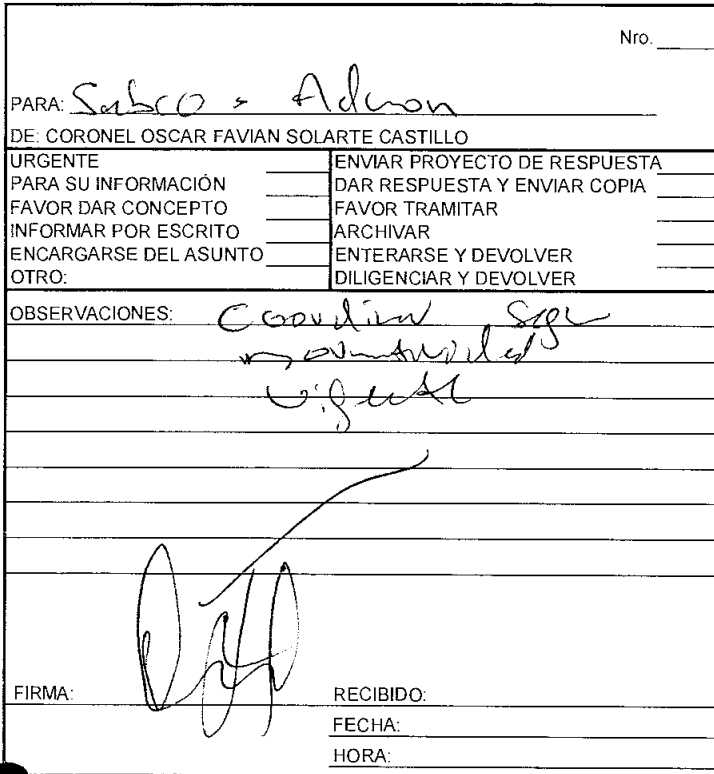 Nro.
PARA: Subco - Admon
DE: CORONEL OSCAR FAVIAN SOLARTE CASTILLO
URGENTE
PARA SU INFORMACIÓN
FAVOR DAR CONCEPTO
INFORMAR POR ESCRITO
ENCARGARSE DEL ASUNTO
OTRO:
ENVIAR PROYECTO DE RESPUESTA
DAR RESPUESTA Y ENVIAR COPIA
FAVOR TRAMITAR
ARCHIVAR
ENTERARSE Y DEVOLVER
DILIGENCIAR Y DEVOLVER
OBSERVACIONES: Coordinar
normatividad
vigente
FIRMA:
RECIBIDO:
FECHA:
HORA: